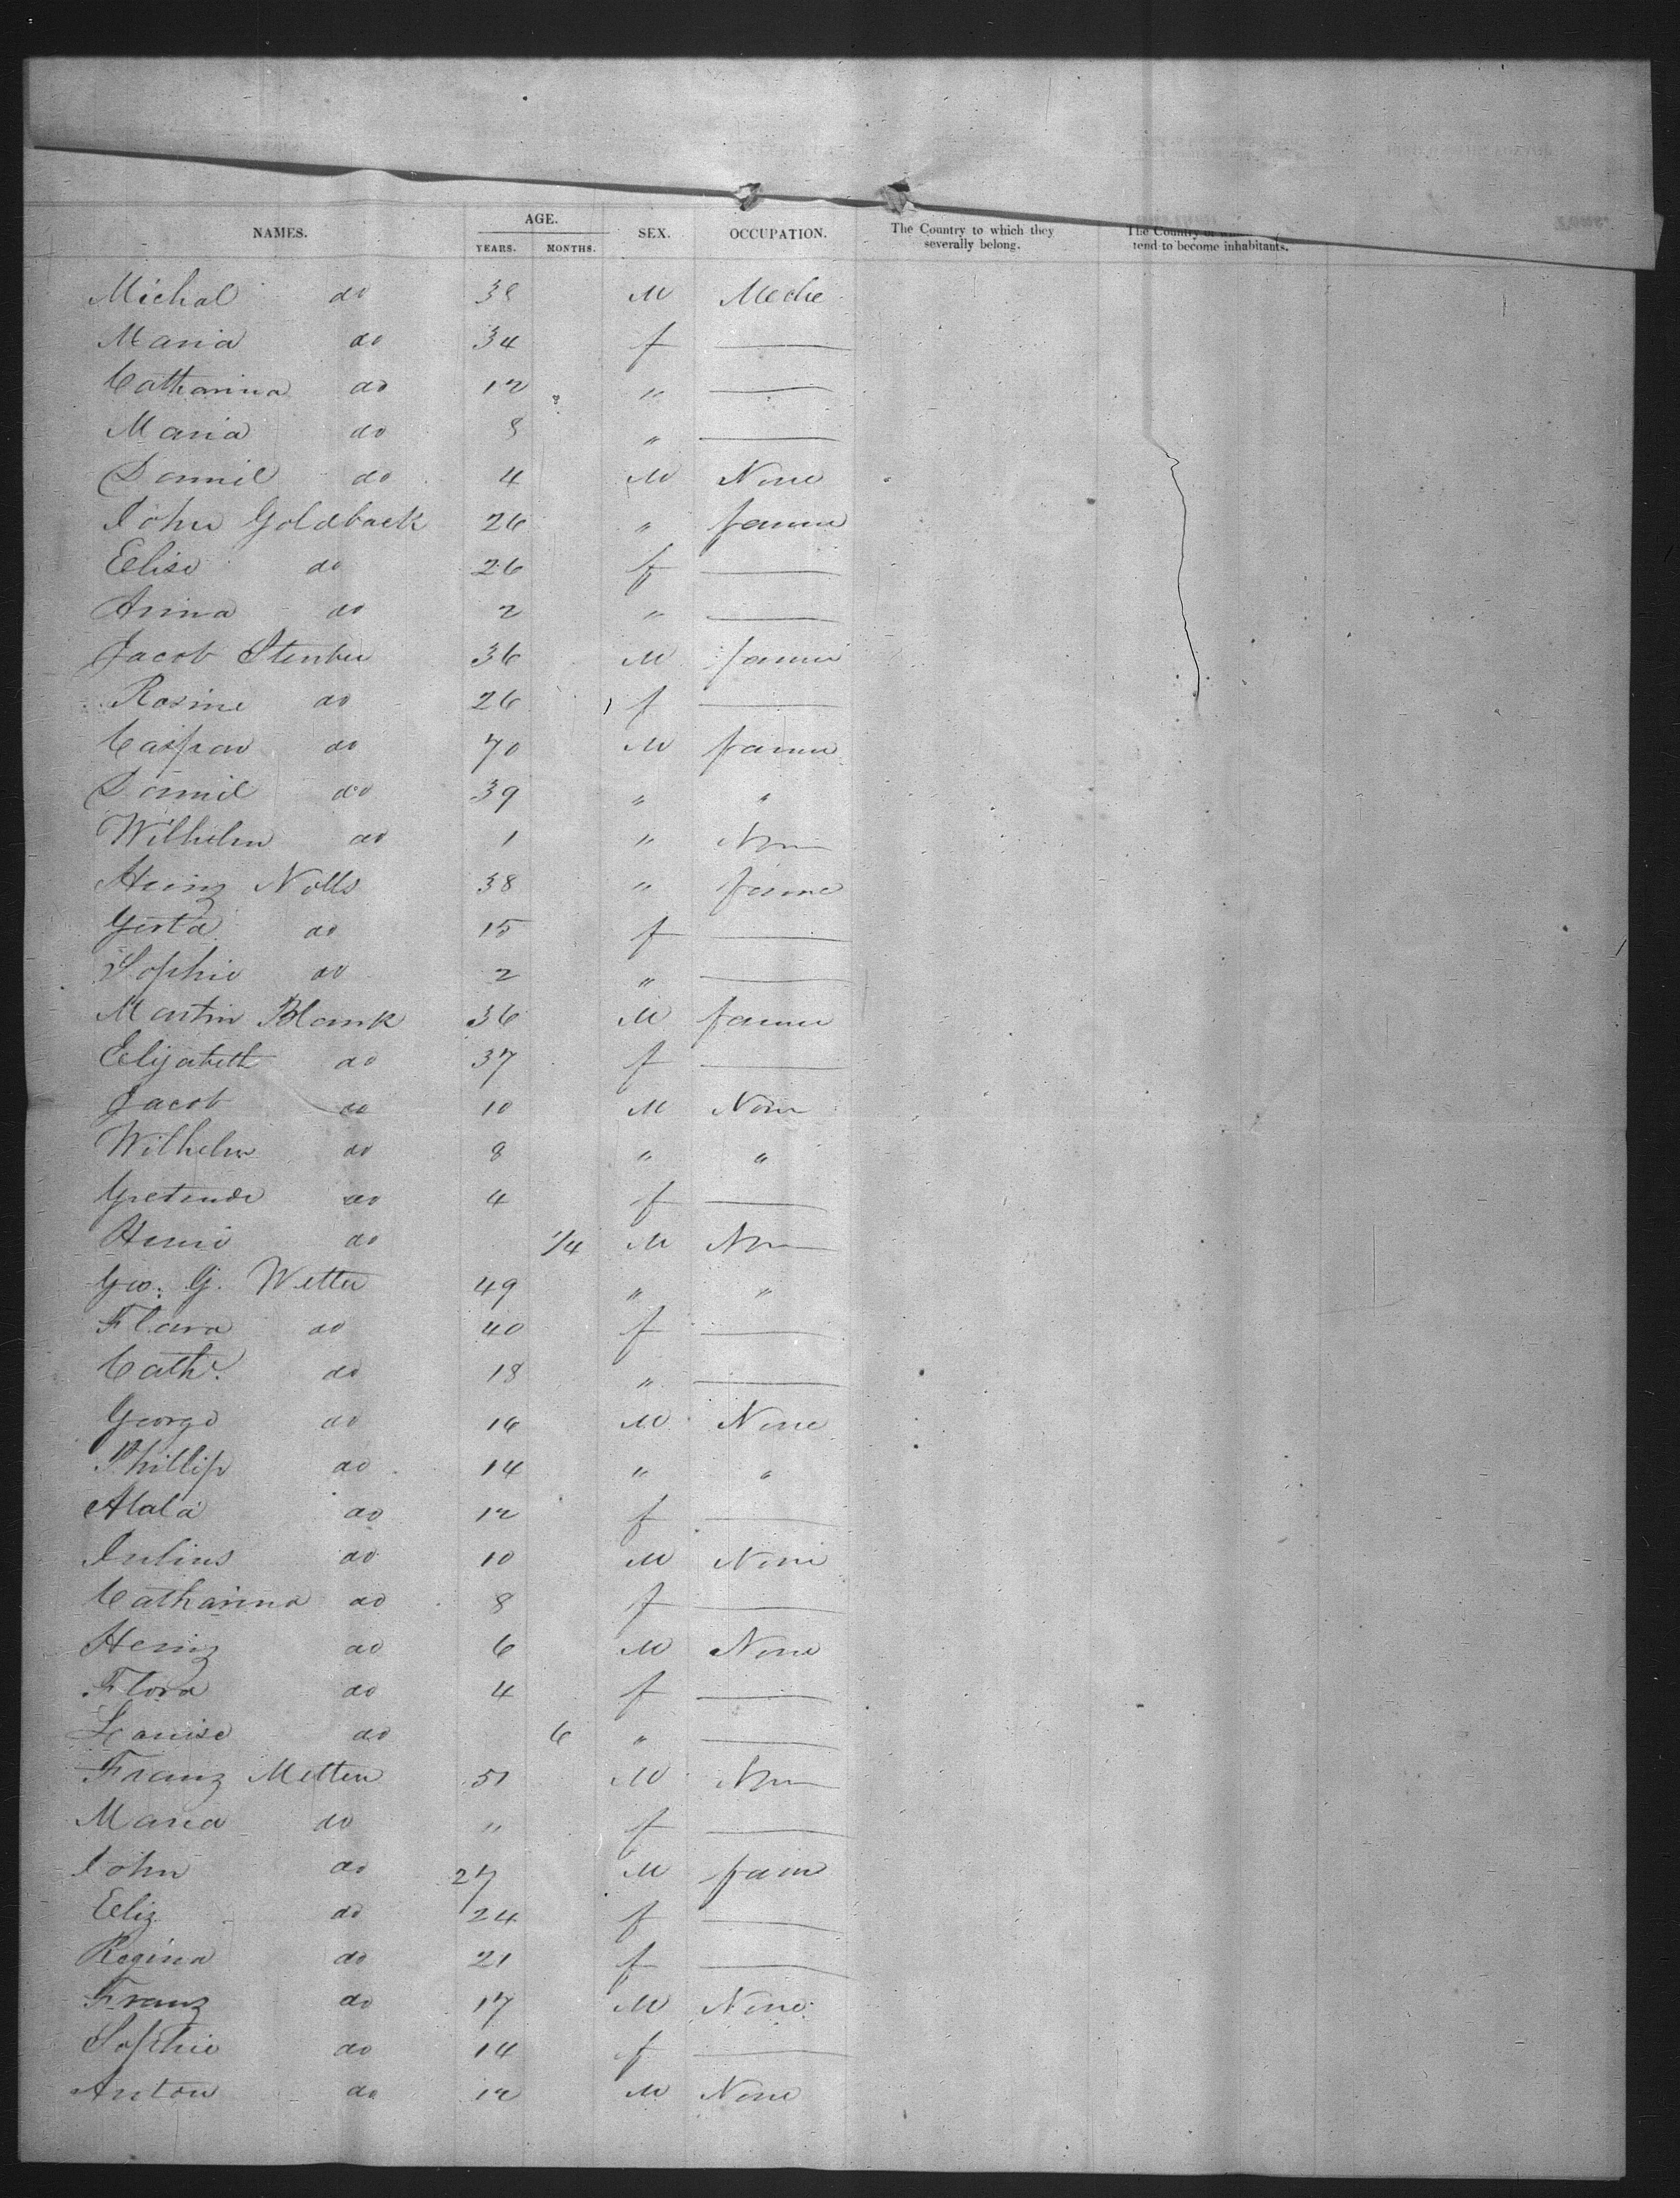 NAMES. AGE. SEX. OCCUPATION. The Country to which they severally belong. The Country tend to become inhabitants.
YEARS. MONTHS.
Michal do 38 M Meche
Maria do 34 f
Catharina do 12 "
Maria do 8 "
Daniel do 4 M None
John Goldback 26 " farmer
Elise do 26 f
Anna do 2 "
Jacob 36 M farmer
Rosine do 26 f
Caspar do 70 M farmer
Daniel do 39 " "
Wilhelm do 1 " None
Heinz Nolls 38 " farmer
Gerta do 15 f
Sophie do 2 "
Martin Blank 36 M farmer
Elizabeth do 37 f
Jacob do 10 M None
Wilhelm do 8 " "
Gretrude do 4 f
Henri do 1/4 M None
Geo. G. Wetter 49 " "
Flara do 40 f
Cath. do 18 "
George do 16 M None
Phillip do 14 " "
do 12 f
Julius do 10 M None
Catharina do 8 f
Heinz do 6 M None
Flora do 4 f
Louise do 6 "
Franz Metten 51 M None
Maria do " f
John do 27 M farm
Eliz do 24 f
Regina do 21 f
Franz do 17 M None
Sophie do 14 f
Anton do 12 M None